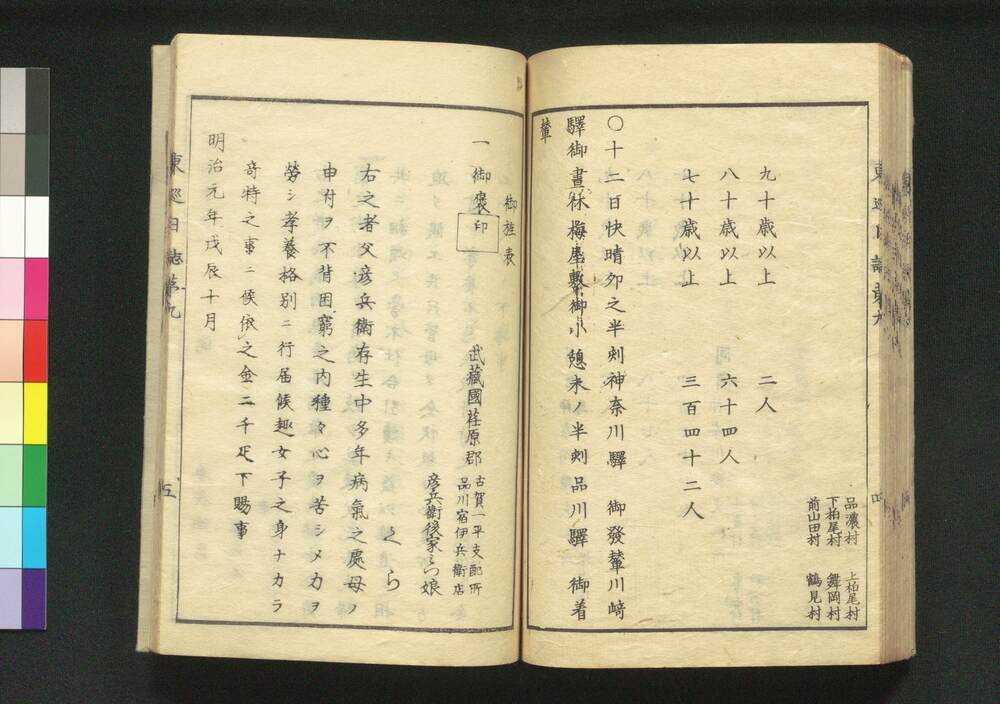 品濃村 上柏尾村
下柏尾村 舞岡村
前山田村 鶴見村
九十歳以上 二人
八十歳以上 六十四人
七十歳以上 三百四十二人
〇十二日快晴夘之半刻神奈川驛 御發輦川﨑
驛御晝休梅屋敷御小憩未ノ半刻品川驛 御着
輦
御旌表
一 御褒印
武藏國荏原郡
古賀一平支配所
品川宿伊兵衛店
彦兵衛後家らく娘
とら
右之者父彦兵衛存生中多年病氣之處母ノ
申付ヲ不背困窮之内種々心ヲ苦シメカヲ
勞シ孝養格别ニ行届候趣女子之身ナカラ
竒特之事ニ候依之金二千疋下賜事
明治元年戊辰十月
東巡日誌第九
五
東巡日誌第九
四